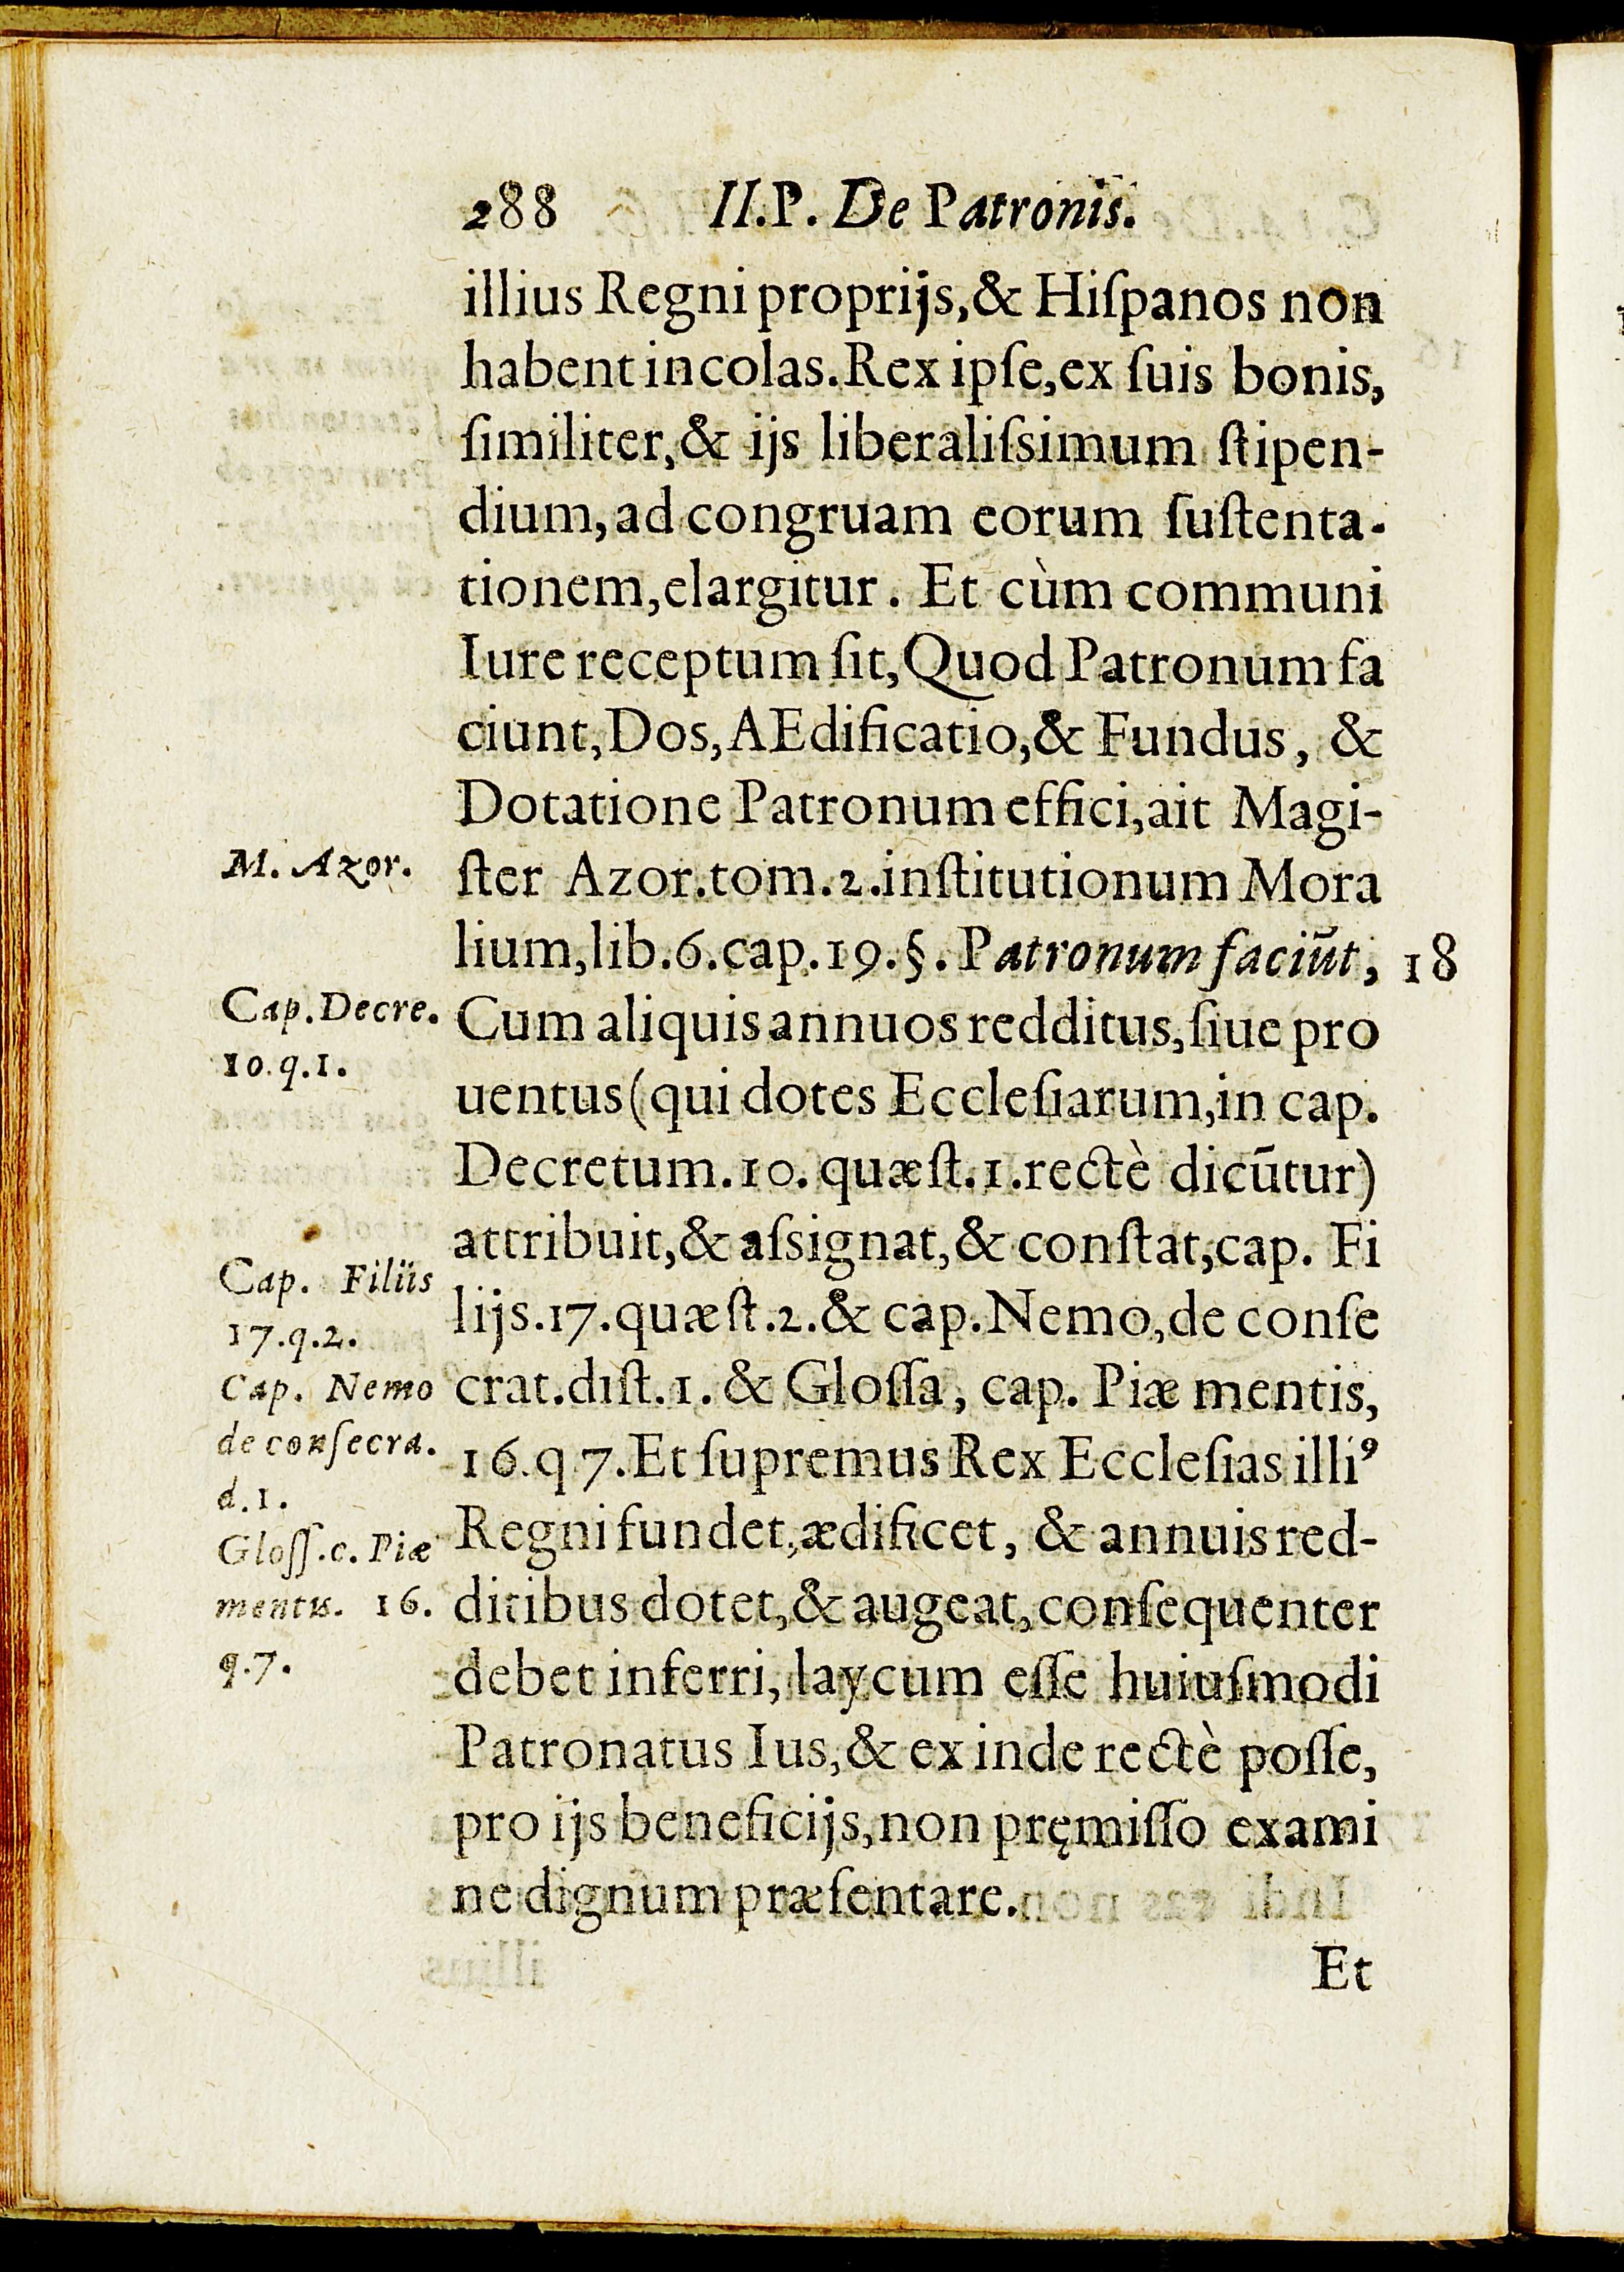 288 II.P. De Patronis.
illius Regni proprijs,& Hiſpanos non
habent incolas.Rex ipſe,ex ſuis bonis,
ſimiliter,& ijs liberaliſsimum ſtipen-
dium,ad congruam eorum ſuſtenta-
tionem,elargitur. Et cùm communi
Iure receptum ſit,Quod Patronum fa
ciunt,Dos,AEdificatio,& Fundus, &
Dotatione Patronum effici,ait Magi-
M. Azor.
ſter Azor.tom.2.inſtitutionum Mora
lium,lib.6.cap.19.§. Patronum faciũt, 18
Cap.Decre.
10.q.1.
Cum aliquis annuos redditus,ſiue pro
uentus(qui dotes Eccleſiarum,in cap.
Decretum.10.quæſt.1.rectè dicũtur)
attribuit,& aſsignat,& conſtat,cap. Fi
Cap. Filiis
17.q.2.
lijs.17.quæſt.2.& cap.Nemo,de conſe
Cap. Nemo
de conſecra.
d.1.
crat.diſt.1.& Gloſſa, cap. Piæ mentis,
16.q 7.Et ſupremus Rex Eccleſias illi⁹
Gloſſ.c. Piæ
mentis. 16.
q.7.
Regni fundet,ædificet, & annuis red-
ditibus dotet,& augeat,conſequenter
debet inferri, laycum eſſe huiuſmodi
Patronatus Ius,& ex inde rectè poſſe,
pro ijs beneficijs,non pręmiſſo exami
ne dignum præſentare.
Et